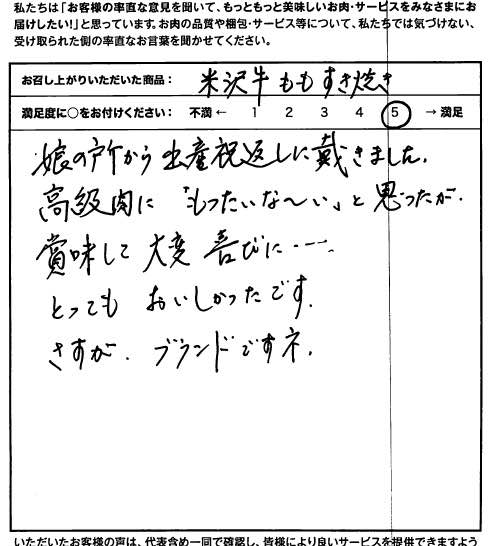 私たちは「お客様の率直な意見を聞いて、もっともっと美味しいお肉・サービスをみなさまにお
届けしたい!」と思っています。お肉の品質や梱包・サービス等について、私たちでは気づけない、
受け取られた側の率直なお言葉を聞かせてください。
お召し上がりいただいた商品： 米沢牛もも すき焼き
満足度に○をお付けください： 不満 ← 1 2 3 4 5 → 満足
娘の所から出産祝返しに戴きました。
高級肉に「もったいな〜い」と思ったが、
賞味して大変喜びに……
とっても おいしかったです。
さすが、ブランドですネ。
いただいたお客様の声は、代表含め一同で確認し、皆様により良いサービスを提供できますよう